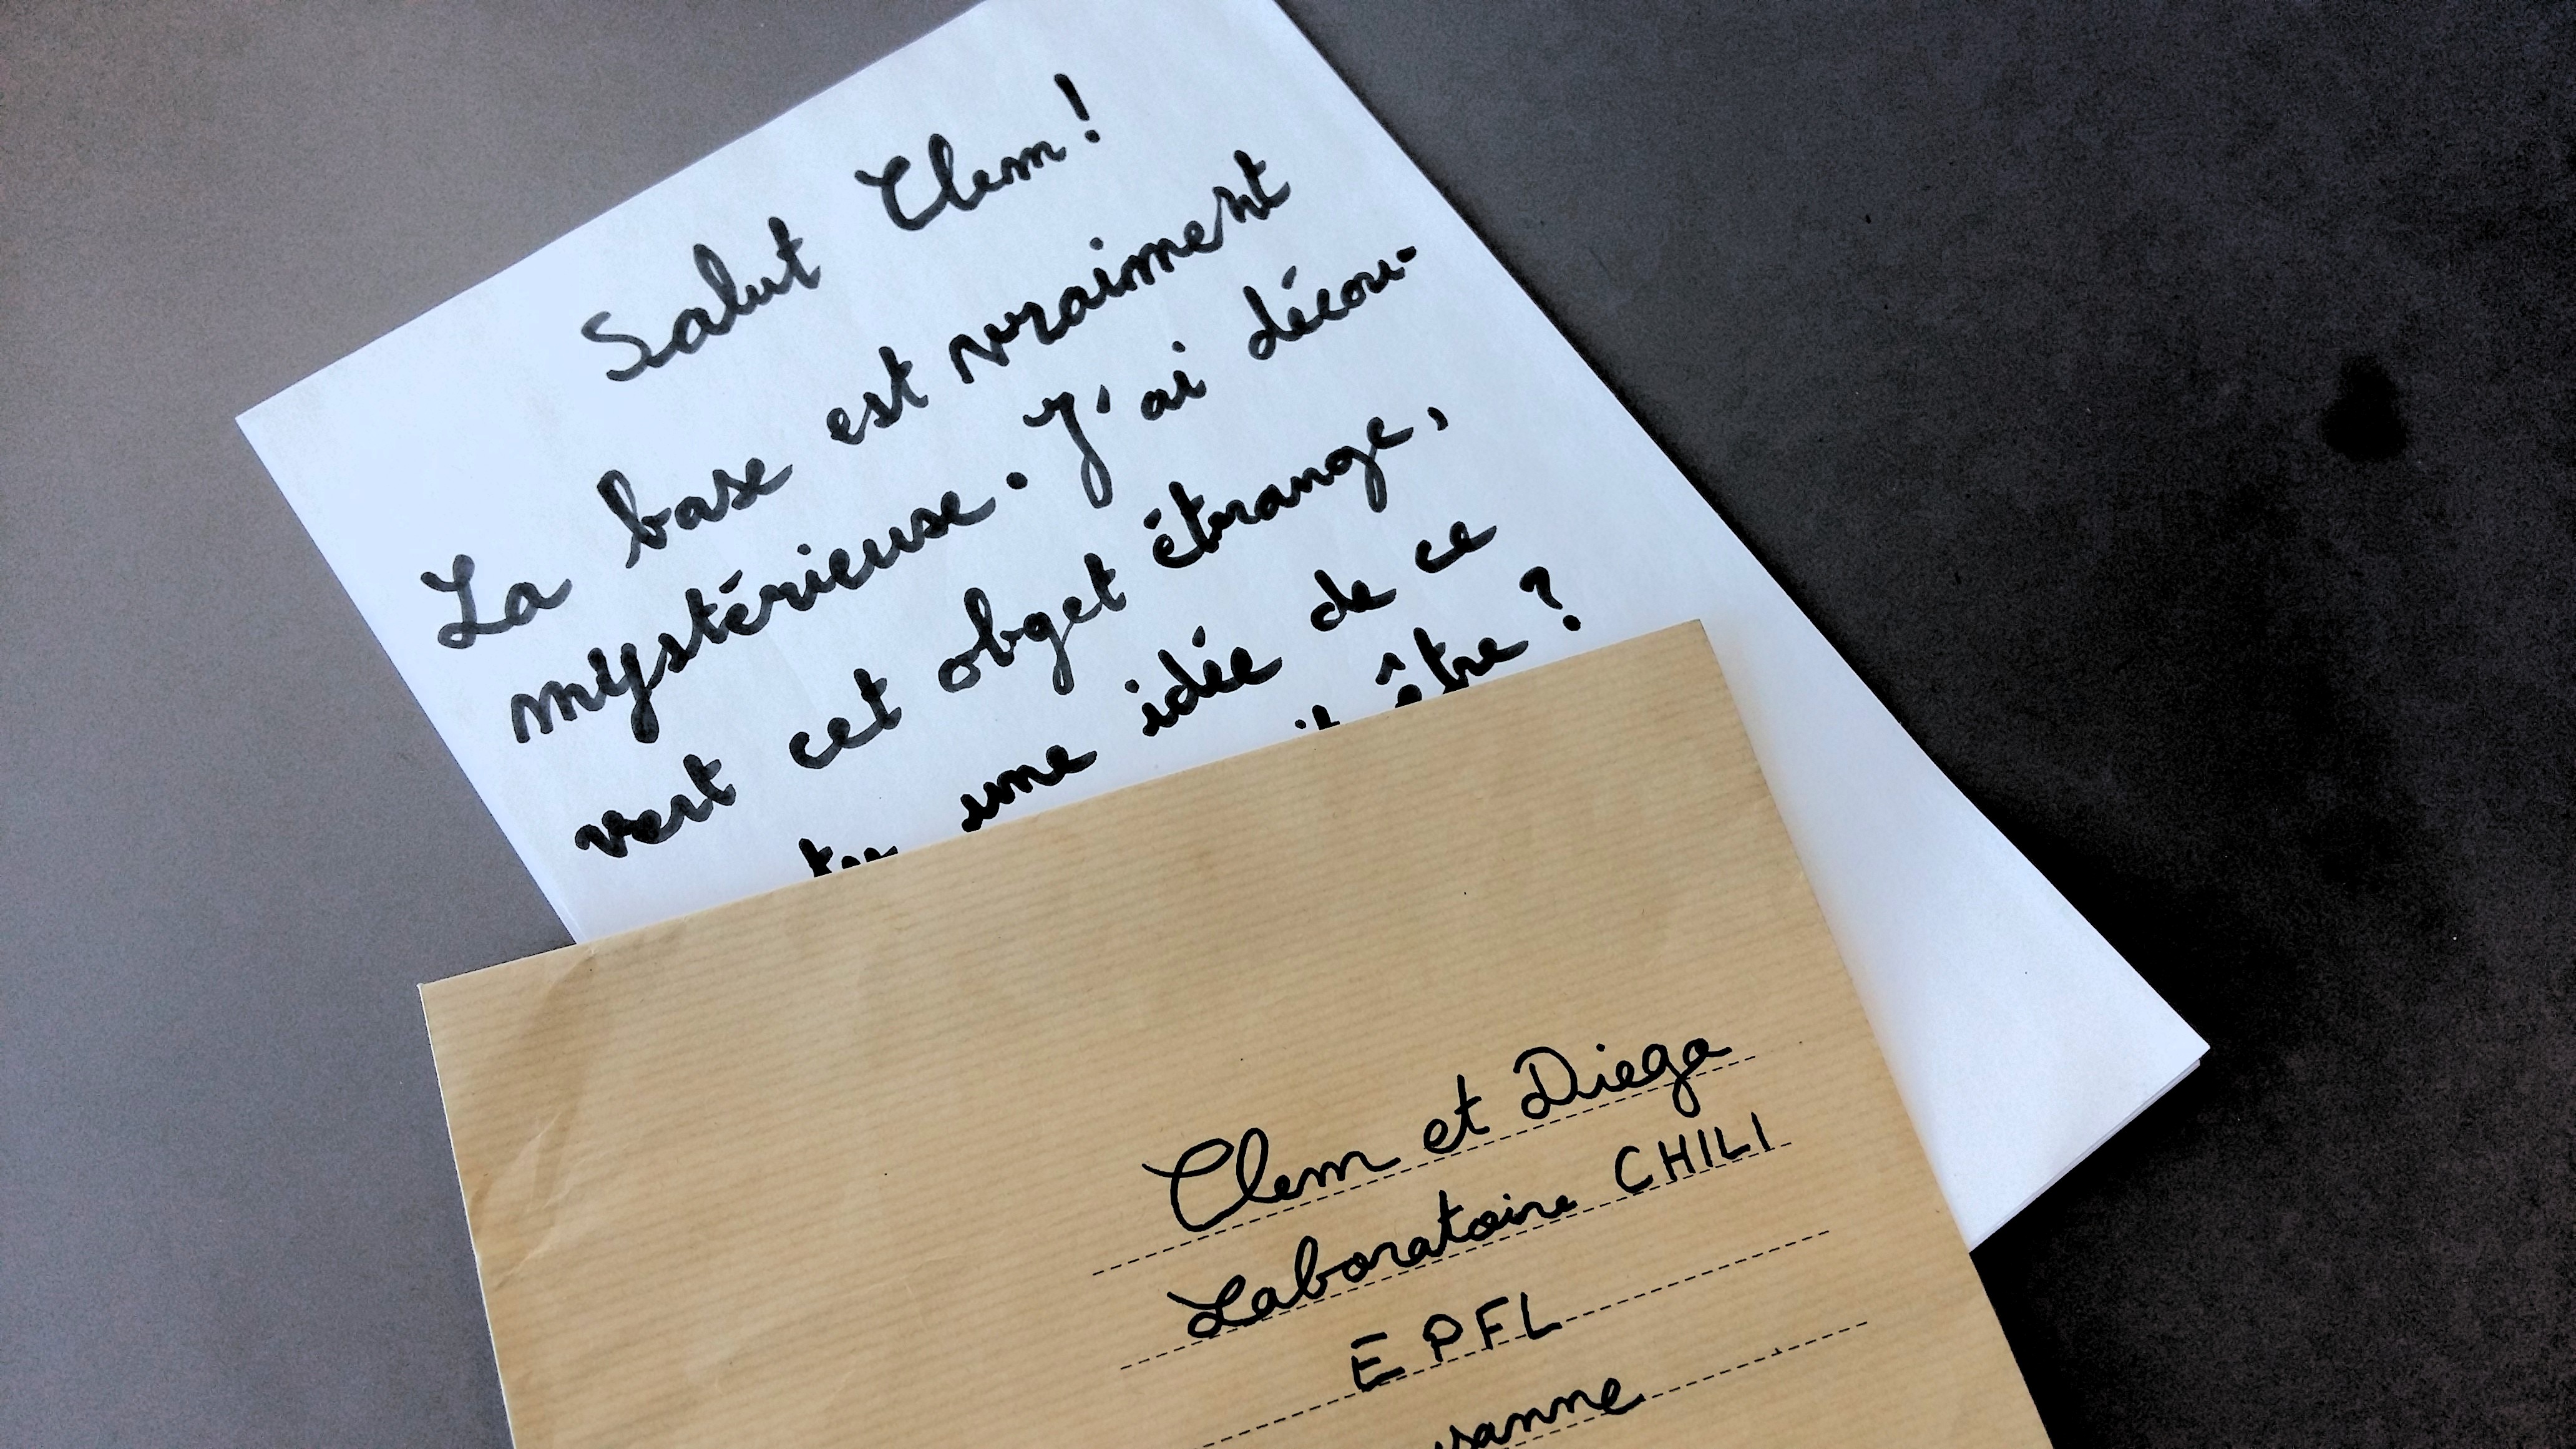 Salut Clem!
La base est vraiment
mystérieuse. J'ai décou-
vert cet obget étrange,
tu une idée de ce
être ?
Clem et Diego
Laboratoire CHILI
EPFL